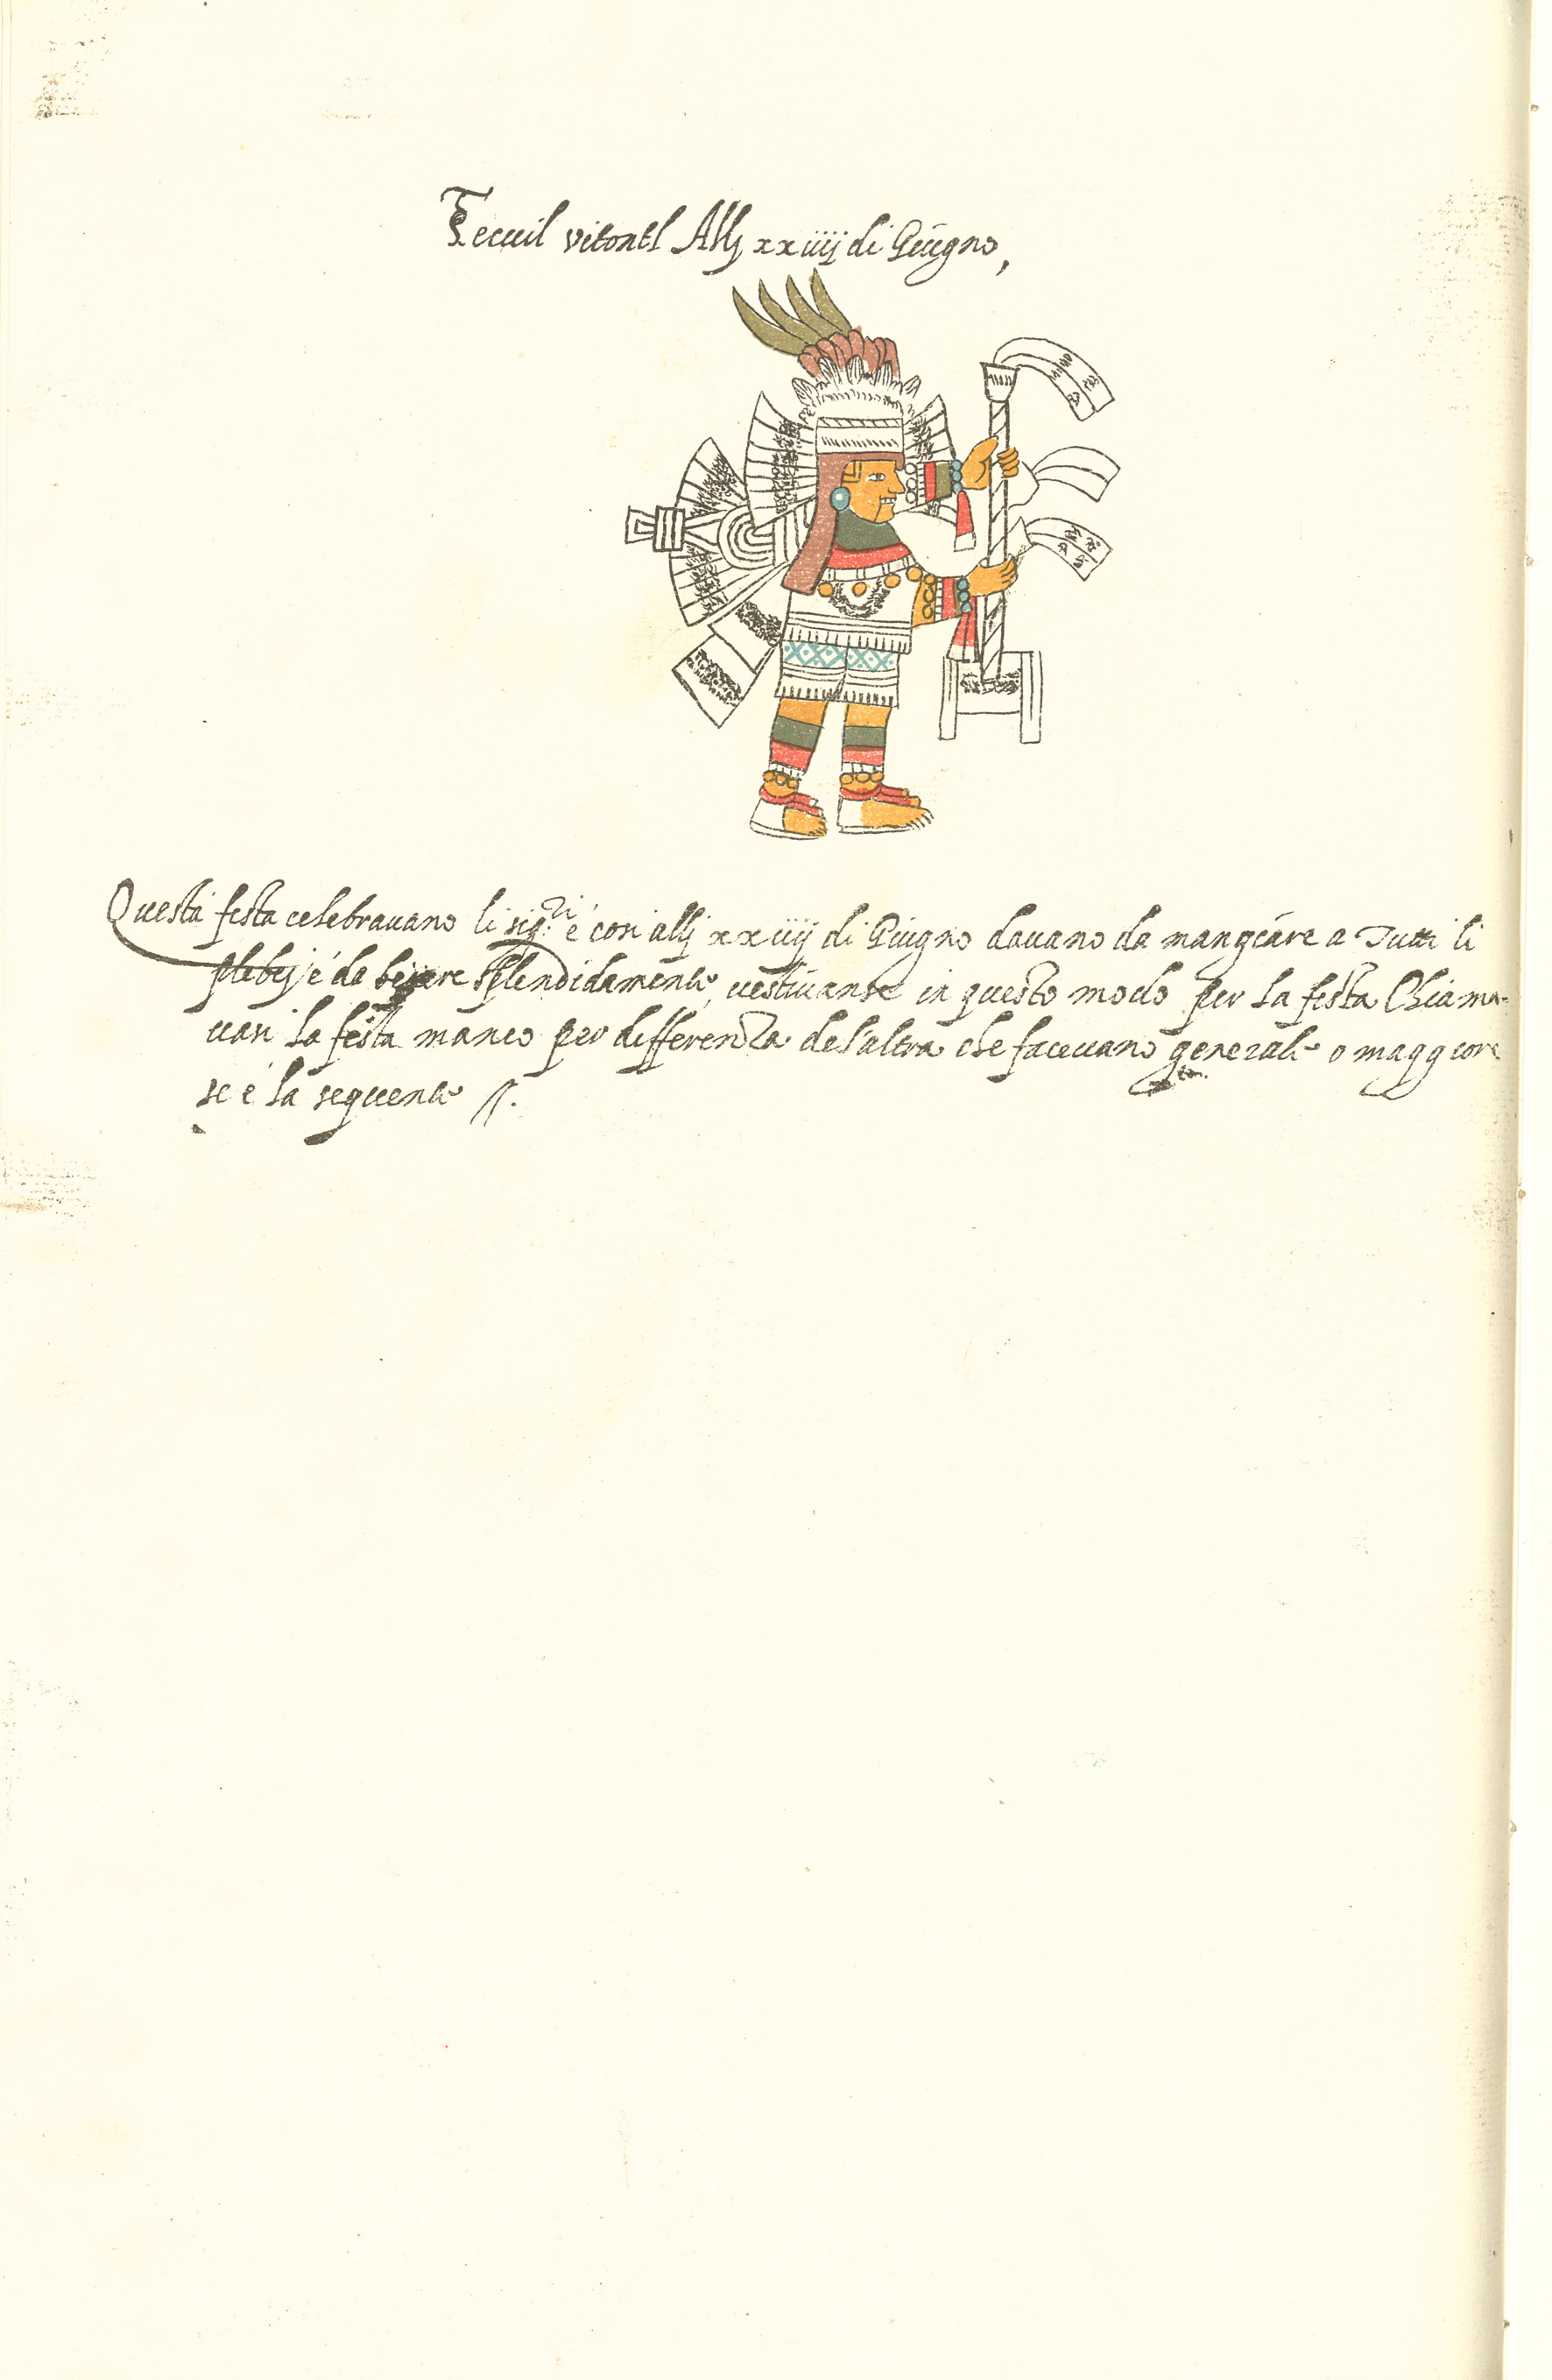 Tecuil vitontl Allj xxiiij di Giugno,
Questa festa celebravano li sig.ri é cosi allj xxiiij di Giugno davano da mangiare a Tutti li
plebej é da bevere splendidamente, vestivanse in questo modo per la festa Chiama-
van la festa manco per differenza del'altra che facevano generale o maggiore
se é la sequente